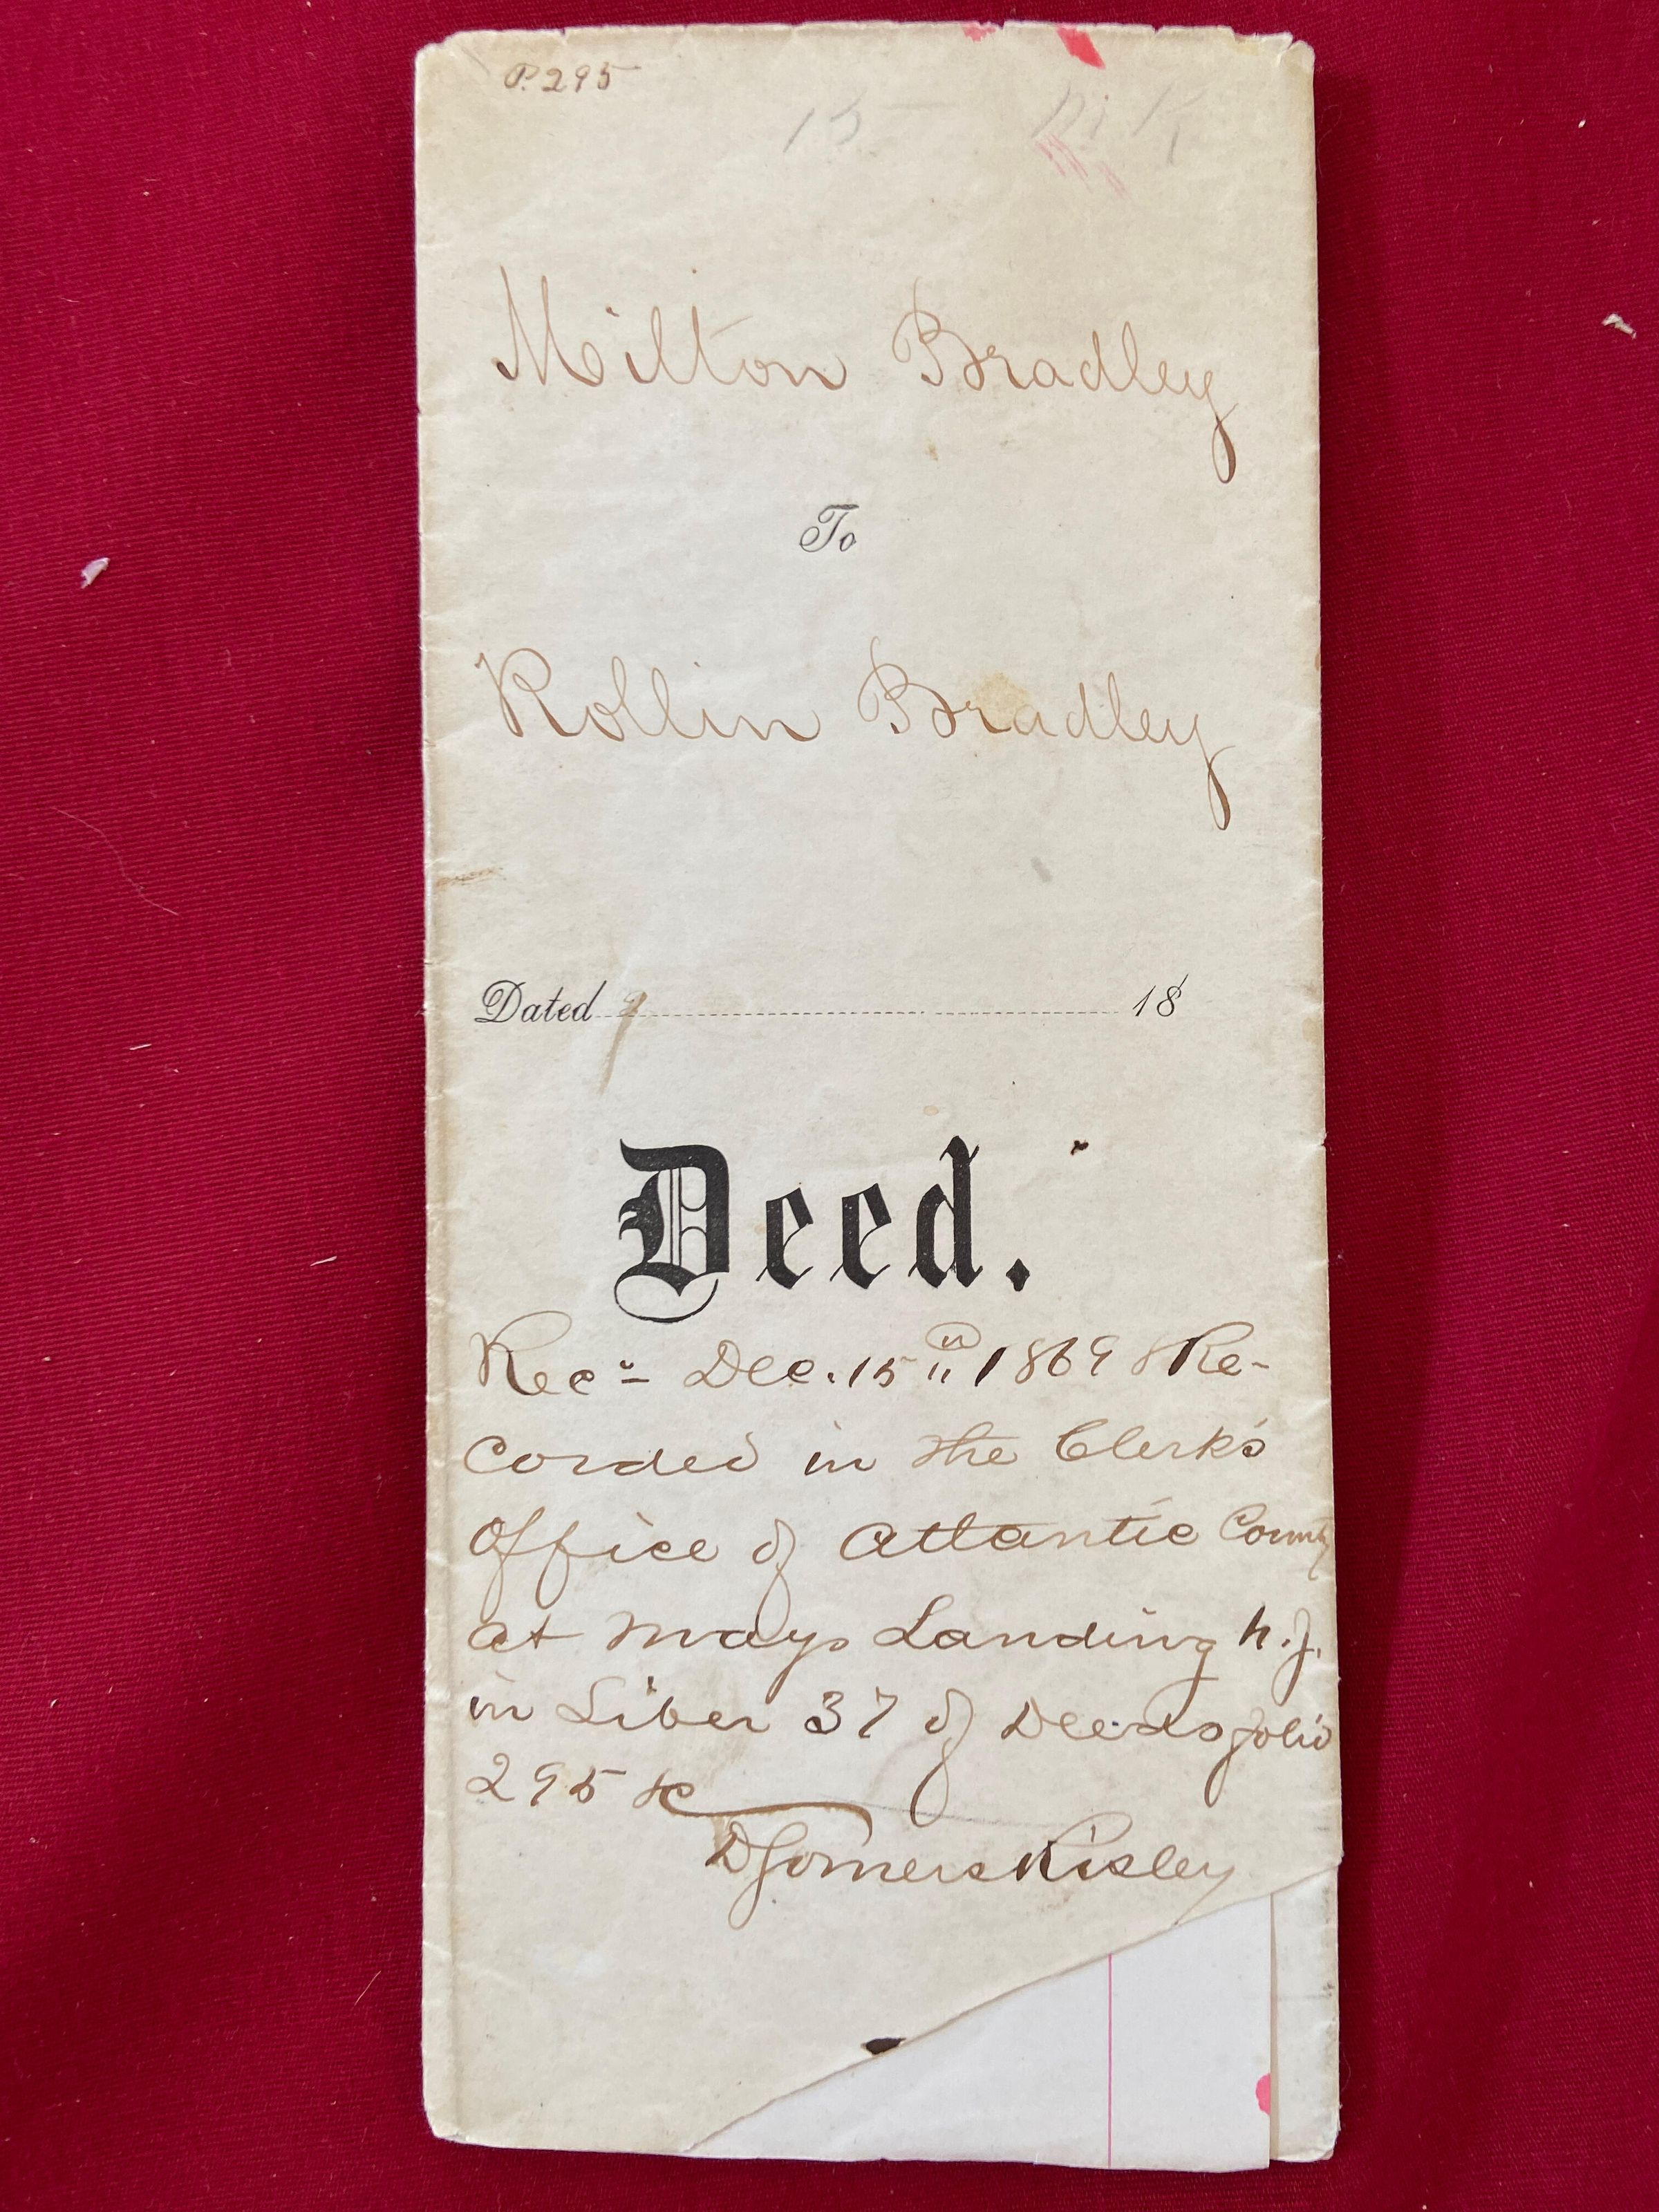 P. 295
15 —
Milton Bradley
To
Rollin Bradley
Dated 18
Deed.
Rec. Dec. 15th 1869 & Re-
corded in the Clerk's
Office of Atlantic County
at Mays Landing N.J.
in Liber 37 of Deeds folio
295 &c
D Somers Risley